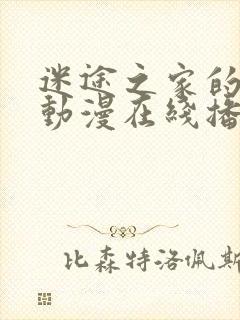 迷途之家的
動漫在綫播
比森特洛佩斯